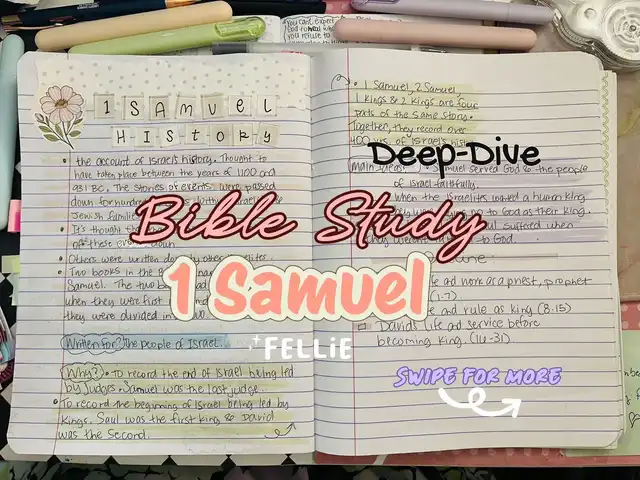 You can't expect
God to
you refuse to
1 SAMUEL
HISTORY
the account of Israel's history. Thought to
have taken place between the years of 1100 and
931 BC. The stories of events were passed
down for hundred
Jewish families
It's thought the
of these
down
Others were written do by other
Two books in the B
Samuel. The two b ad
when they were first
they were divided in
Written for: the people of Israel.
Why? • To record the end of Israel being led
by Judges. Samuel was the last judge.
To record the beginning of Israel being led by
Kings. Saul was the first king & David
was the second.
1 Samuel, 2 Samuel,
1 Kings & 2 Kings are four
parts of the same story.
Together, they record over
400 yrs. of Israel's his
Main Ideas: Samuel served God & the people
of Israel faithfully.
When the Israelites wanted a human king
no to God as their king.
suffered when
to God.
e and work as a priest, prophet
(1-7)
e and rule as king (8-15)
David's life and service before
becoming king. (16-31)
Deep-Dive
Bible Study
1 Samuel
FELLiE
SWIPE FOR MORE